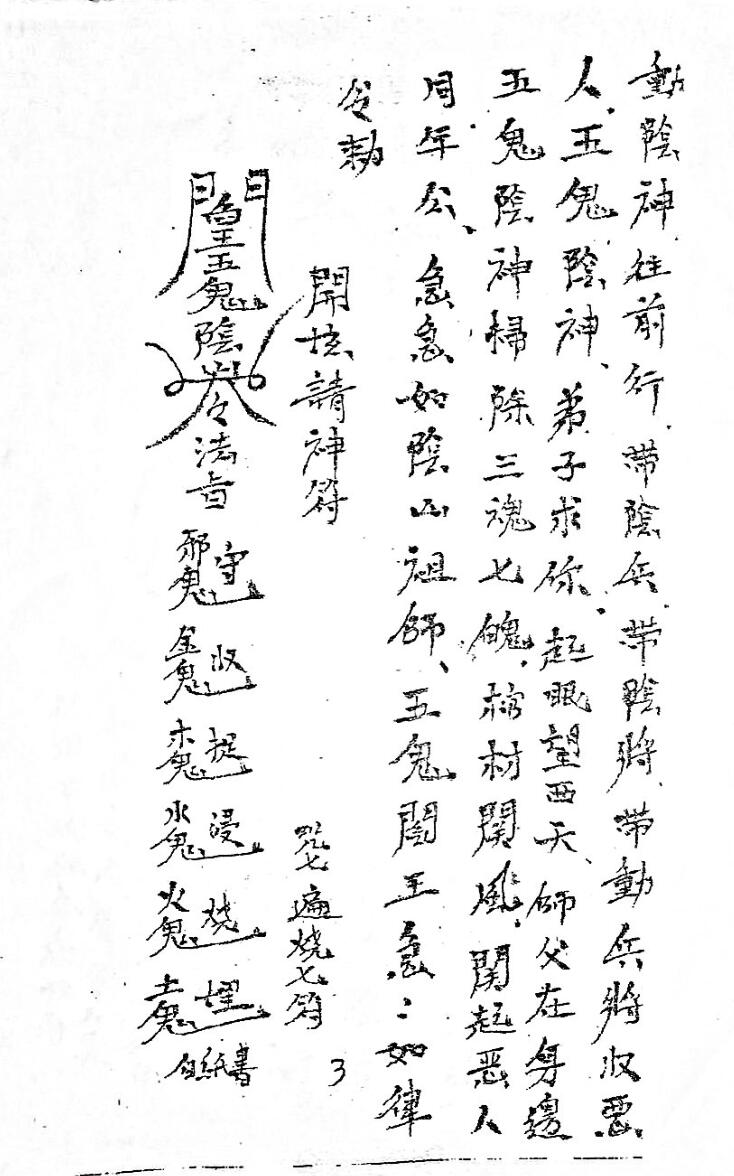 動陰神往前行帶陰兵帶陰將帶動兵將收惡
人、五鬼陰神、弟子求你、起眼望西天、師父在身邊
五鬼陰神掃除三魂七魄、棺材関風、関起惡人
同年公、急急如陰山祖師、五鬼閻王急：如律
令勅
開坛請神符
咒七遍燒七符
五鬼陰
令法旨
邪鬼守
金鬼收
木鬼捉
水鬼浸
火鬼燒
土鬼埋
白紙書
3